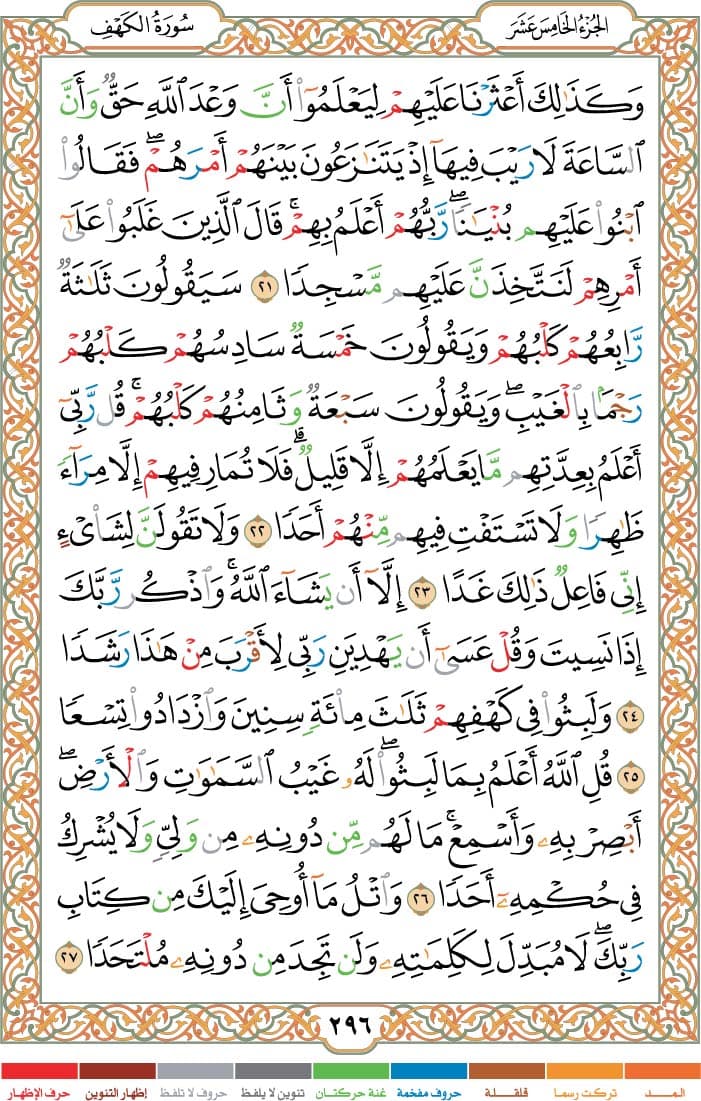 الجُزْءُ الخَامِسَ عَشَرَ
سُورَةُ الكَهْفِ
وَكَذَٰلِكَ أَعْثَرْنَا عَلَيْهِمْ لِيَعْلَمُوٓا۟ أَنَّ وَعْدَ ٱللَّهِ حَقٌّ وَأَنَّ
ٱلسَّاعَةَ لَا رَيْبَ فِيهَآ إِذْ يَتَنَٰزَعُونَ بَيْنَهُمْ أَمْرَهُمْ ۖ فَقَالُوا۟
ٱبْنُوا۟ عَلَيْهِم بُنْيَٰنًا ۖ رَّبُّهُمْ أَعْلَمُ بِهِمْ ۚ قَالَ ٱلَّذِينَ غَلَبُوا۟ عَلَىٰٓ
أَمْرِهِمْ لَنَتَّخِذَنَّ عَلَيْهِم مَّسْجِدًا ٢١ سَيَقُولُونَ ثَلَٰثَةٌ
رَّابِعُهُمْ كَلْبُهُمْ وَيَقُولُونَ خَمْسَةٌ سَادِسُهُمْ كَلْبُهُمْ
رَجْمًۢا بِٱلْغَيْبِ ۖ وَيَقُولُونَ سَبْعَةٌ وَثَامِنُهُمْ كَلْبُهُمْ ۚ قُل رَّبِّىٓ
أَعْلَمُ بِعِدَّتِهِم مَّا يَعْلَمُهُمْ إِلَّا قَلِيلٌ ۗ فَلَا تُمَارِ فِيهِمْ إِلَّا مِرَآءً
ظَٰهِرًا وَلَا تَسْتَفْتِ فِيهِم مِّنْهُمْ أَحَدًا ٢٢ وَلَا تَقُولَنَّ لِشَا۟ىْءٍ
إِنِّى فَاعِلٌ ذَٰلِكَ غَدًا ٢٣ إِلَّآ أَن يَشَآءَ ٱللَّهُ ۚ وَٱذْكُر رَّبَّكَ
إِذَا نَسِيتَ وَقُلْ عَسَىٰٓ أَن يَهْدِيَنِ رَبِّى لِأَقْرَبَ مِنْ هَٰذَا رَشَدًا
٢٤ وَلَبِثُوا۟ فِى كَهْفِهِمْ ثَلَٰثَ مِا۟ئَةٍ سِنِينَ وَٱزْدَادُوا۟ تِسْعًا
٢٥ قُلِ ٱللَّهُ أَعْلَمُ بِمَا لَبِثُوا۟ ۖ لَهُۥ غَيْبُ ٱلسَّمَٰوَٰتِ وَٱلْأَرْضِ ۖ
أَبْصِرْ بِهِۦ وَأَسْمِعْ ۚ مَا لَهُم مِّن دُونِهِۦ مِن وَلِىٍّ وَلَا يُشْرِكُ
فِى حُكْمِهِۦٓ أَحَدًا ٢٦ وَٱتْلُ مَآ أُوحِىَ إِلَيْكَ مِن كِتَابِ
رَبِّكَ ۖ لَا مُبَدِّلَ لِكَلِمَٰتِهِۦ وَلَن تَجِدَ مِن دُونِهِۦ مُلْتَحَدًا ٢٧
٢٩٦
المــد تركت رسما قلقـلة حروف مفخمة غنة حركتان تنوين لا يلفظ حروف لا تلفظ إظهار التنوين حرف الإظهار